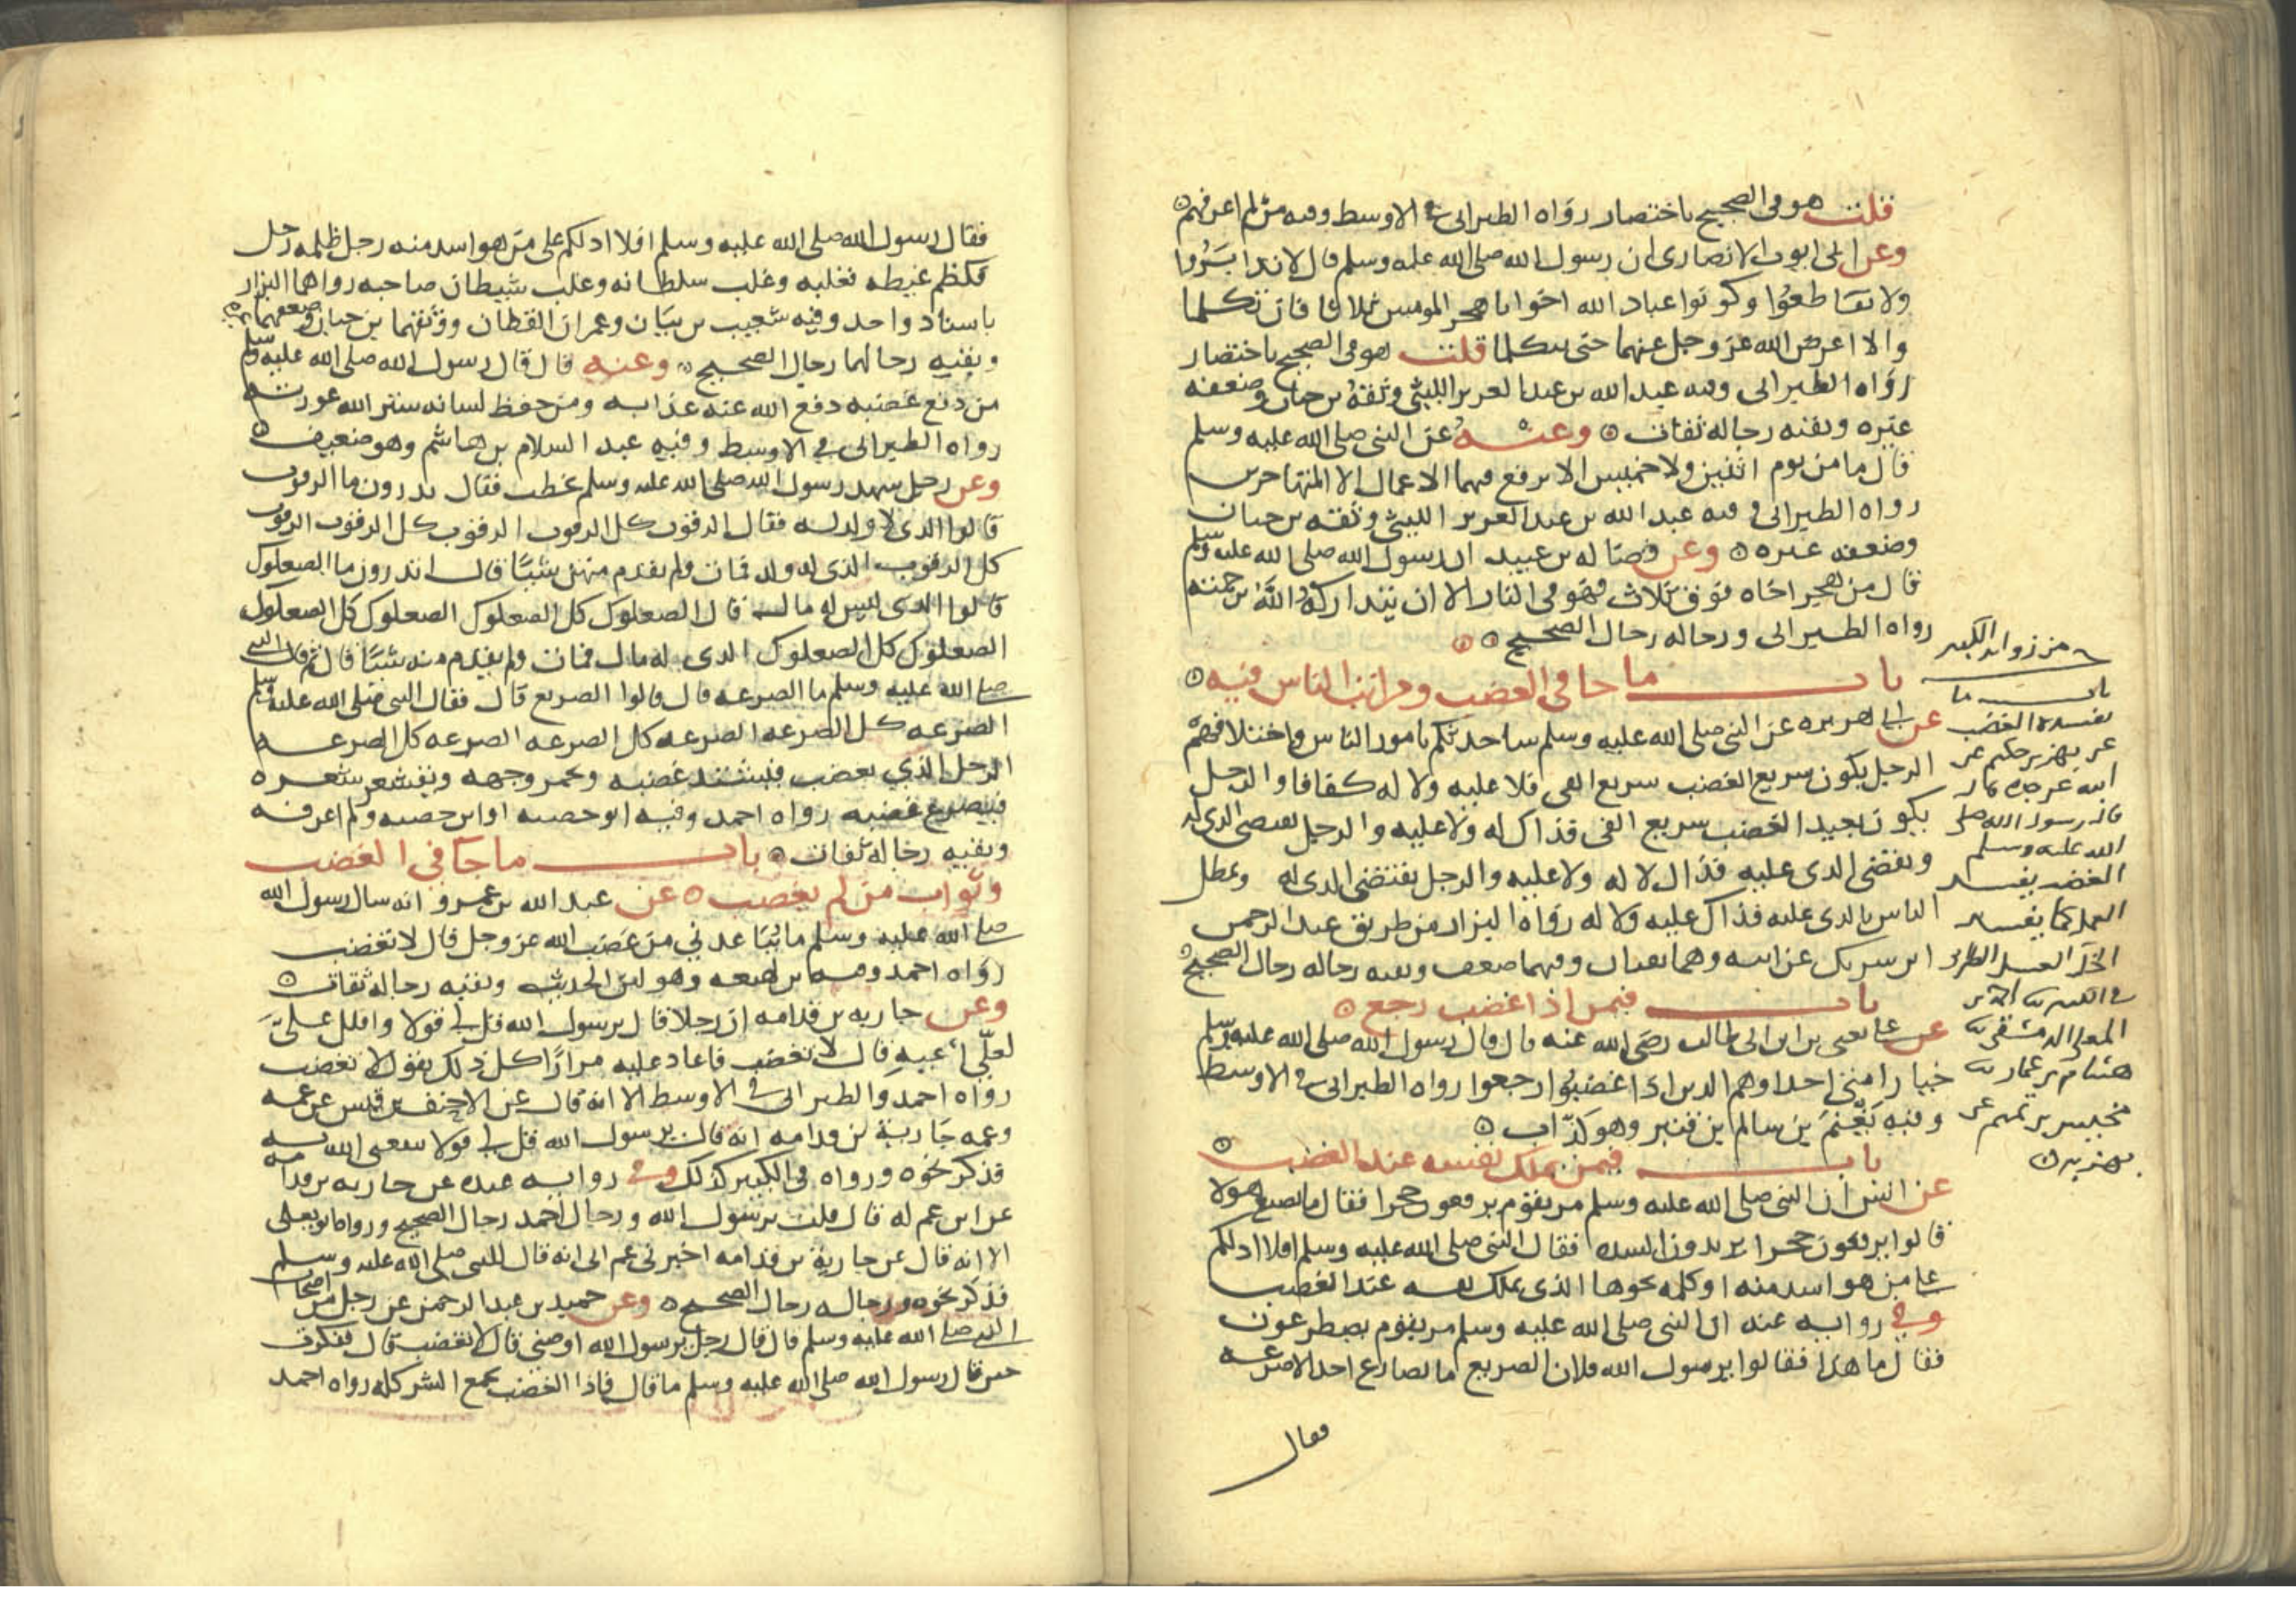 قلت هو في الصحيح باختصار رواه الطبراني في الاوسط وفيه من لم اعرفهم
وعن ابي ايوب الانصاري ان رسول الله صلى الله عليه وسلم قال لا تدابروا
ولا تقاطعوا وكونوا عباد الله اخوانا هجر المومنين ثلاثا فان تكلما
والا اعرض الله عز وجل عنهما حتى يتكلما قلت هو في الصحيح باختصار
رواه الطبراني وفيه عبد الله بن عبد العزيز الليثي وثقه بن حبان وضعفه
غيره وبقية رجاله ثقات وعنه عن النبي صلى الله عليه وسلم
قال ما من يوم اثنين ولا خميس الا يرفع فيهما الاعمال الا المتهاجرين
رواه الطبراني وفيه عبد الله بن عبد العزيز الليثي وثقه بن حبان
وضعفه غيره وعن فضاله بن عبيد ان رسول الله صلى الله عليه وسلم
قال من هجر اخاه فوق ثلاث فهو في النار الا ان يتداركه الله برحمته
رواه الطبراني ورجاله رجال الصحيح
باب ما جا في الغضب ومراتب الناس فيه
عن ابي هريره عن النبي صلى الله عليه وسلم ساحدثكم بامور الناس واختلافهم
الرجل يكون سريع الغضب سريع الفي فلا عليه ولا له كفافا والرجل
يكون بعيد الغضب سريع الفي فذاك له ولا عليه والرجل يقتضي الذي له
ويقضي الذي عليه فذاك لا له ولا عليه والرجل يقتضي الذي له ويمطل
الناس بالذي عليه فذاك عليه ولا له رواه البزار من طريق عبد الرحمن
ابن شريك عن ابيه وهما ثقتان وفيهما ضعف وبقيه رجاله رجال الصحيح
باب فيمن اذا غضب رجع
عن علي يعني بن ابي طالب رضي الله عنه قال قال رسول الله صلى الله عليه وسلم
خيار امتي احداوهم الذين اذا غضبوا رجعوا رواه الطبراني في الاوسط
وفيه يغنم بن سالم بن قنبر وهو كذاب
باب فيمن يملك نفسه عند الغضب
عن انس ان النبي صلى الله عليه وسلم مر بقوم يرفعون حجرا فقال ما يصنع هولا
قالوا يرفعون حجرا يريدون الشده فقال النبي صلى الله عليه وسلم افلا ادلكم
على من هو اشد منه او كلمه نحوها الذي يملك نفسه عند الغضب
وفي روايه عنه ان النبي صلى الله عليه وسلم مر بقوم يصطرعون
فقال ما هذا فقالوا يرسول الله فلان الصريع ما يصارع احدا الا صرعه
فقال
من زوايد الكبير
باب ما
يفسده الغضب
عن بهز بن حكيم عن
ابيه عن جده قال
قال رسول الله صلى
الله عليه وسلم
الغضب يفسد
العمل كما يفسد
الخل العسل
المعلى الدمشقي
هشام بن عمار
مخيس بن تميم عن
بهز به
فقال رسول الله صلى الله عليه وسلم افلا ادلكم على من هو اشد منه رجل ظلمه رجل
فكظم غيظه فغلبه وغلب سلطانه وغلب شيطان صاحبه رواهما البزار
باسناد واحد وفيه شعيب بن بيان وعمران القطان وثقهما بن حبان وضعفهما غيره
وبقيه رجالهما رجال الصحيح وعنه قال قال رسول الله صلى الله عليه وسلم
من دفع غضبه دفع الله عنه عذابه ومن حفظ لسانه ستر الله عورته
رواه الطبراني في الاوسط وفيه عبد السلام بن هاشم وهو ضعيف
وعن رجل شهد رسول الله صلى الله عليه وسلم يخطب فقال تدرون ما الرقوب
قالوا الذي لا ولد له فقال الرقوب كل الرقوب الرقوب كل الرقوب الرقوب
كل الرقوب الذي له ولد فمات ولم يقدم منهن شيئا قال اتدرون ما الصعلوك
قالوا الذي ليس له مال قال الصعلوك كل الصعلوك الصعلوك كل الصعلوك
الصعلوك كل الصعلوك الذي له مال فمات ولم يقدم منه شيئا قال ثم قال النبي
صلى الله عليه وسلم ما الصرعه قال قالوا الصريع قال فقال النبي صلى الله عليه وسلم
الصرعه كل الصرعه الصرعه كل الصرعه الصرعه كل الصرعه
الرجل الذي يغضب فيشتد غضبه ويحمر وجهه ويقشعر شعره
فيصرع غضبه رواه احمد وفيه ابو حصبه او ابن حصبه ولم اعرفه
وبقيه رجاله ثقات باب ما جا في الغضب
وثواب من لم يغضب عن عبد الله بن عمرو انه سال رسول الله
صلى الله عليه وسلم ما يباعدني من غضب الله عز وجل قال لا تغضب
رواه احمد وفيه بن لهيعه وهو لين الحديث وبقيه رجاله ثقات
وعن جاريه بن قدامه ان رجلا قال يرسول الله قل لي قولا واقلل علي
لعلي اعيه قال لا تغضب فاعاد عليه مرارا كل ذلك يقول لا تغضب
رواه احمد والطبراني في الاوسط الا انه قال عن الاحنف بن قيس عن عمه
وعمه جارية بن قدامه انه قال يرسول الله قل لي قولا ينفعني الله به
فذكر نحوه ورواه في الكبير كذلك وفي روايه عنده عن جاريه بن قدامه
عن ابن عم له قال قلت يرسول الله ورجال احمد رجال الصحيح ورواه ابو يعلى
الا انه قال عن جارية بن قدامه اخبرني عم ابي انه قال للنبي صلى الله عليه وسلم
فذكر نحوه ورجاله رجال الصحيح وعن حميد بن عبد الرحمن عن رجل من اصحاب
النبي صلى الله عليه وسلم قال قال رجل يرسول الله اوصني قال لا تغضب قال ففكرت
حين قال رسول الله صلى الله عليه وسلم ما قال فاذا الغضب يجمع الشر كله رواه احمد